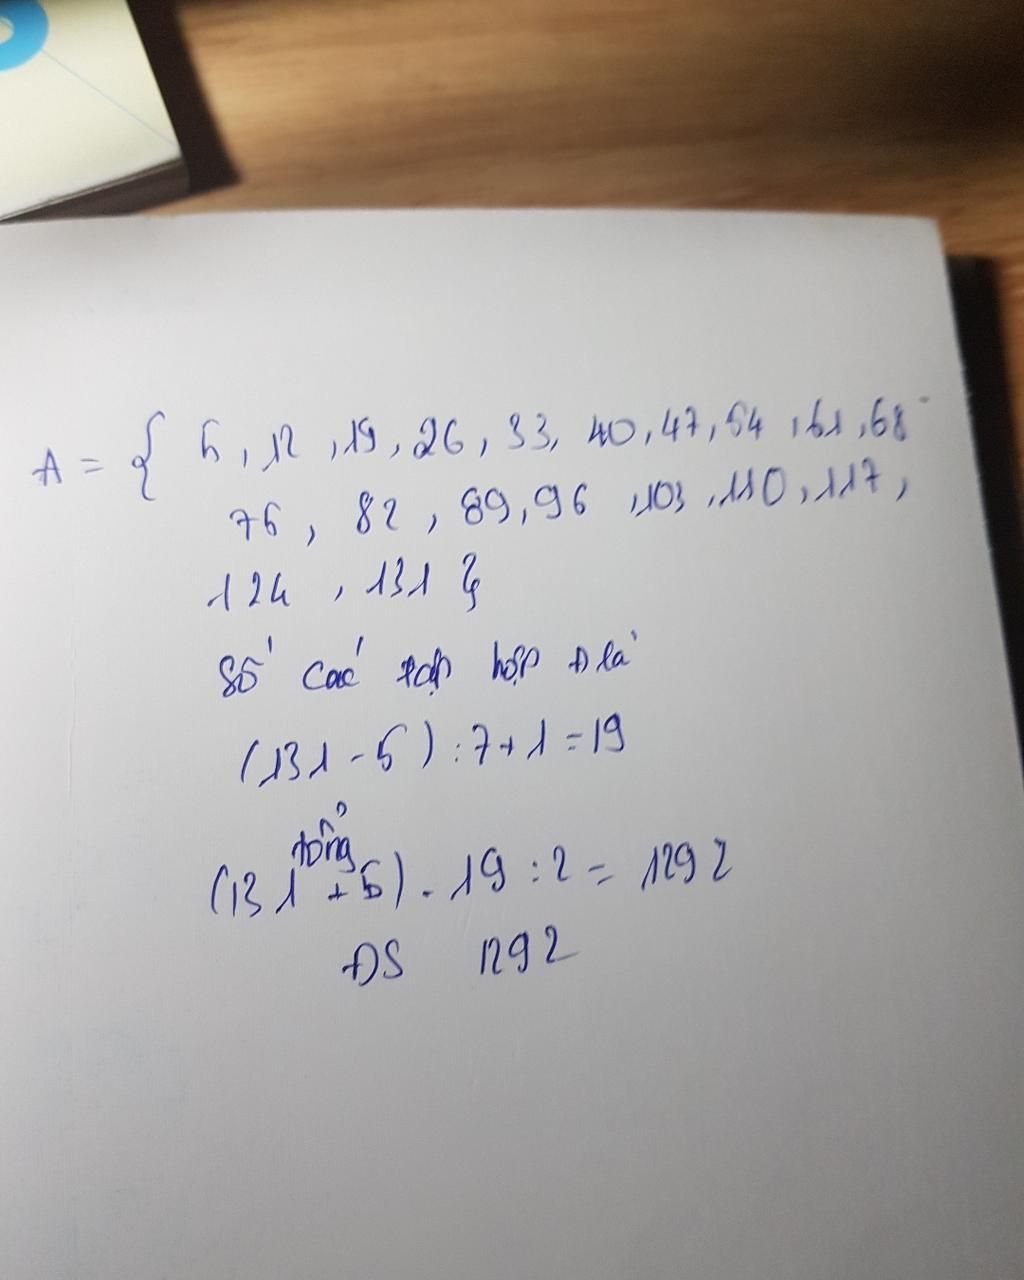 A = { 5, 12, 19, 26, 33, 40, 47, 54, 61, 68
75, 82, 89, 96, 103, 110, 117,
124, 131 }
Số các tập hợp A là
(131 - 5) : 7 + 1 = 19
tổng
(131 + 5) . 19 : 2 = 1292
ĐS 1292